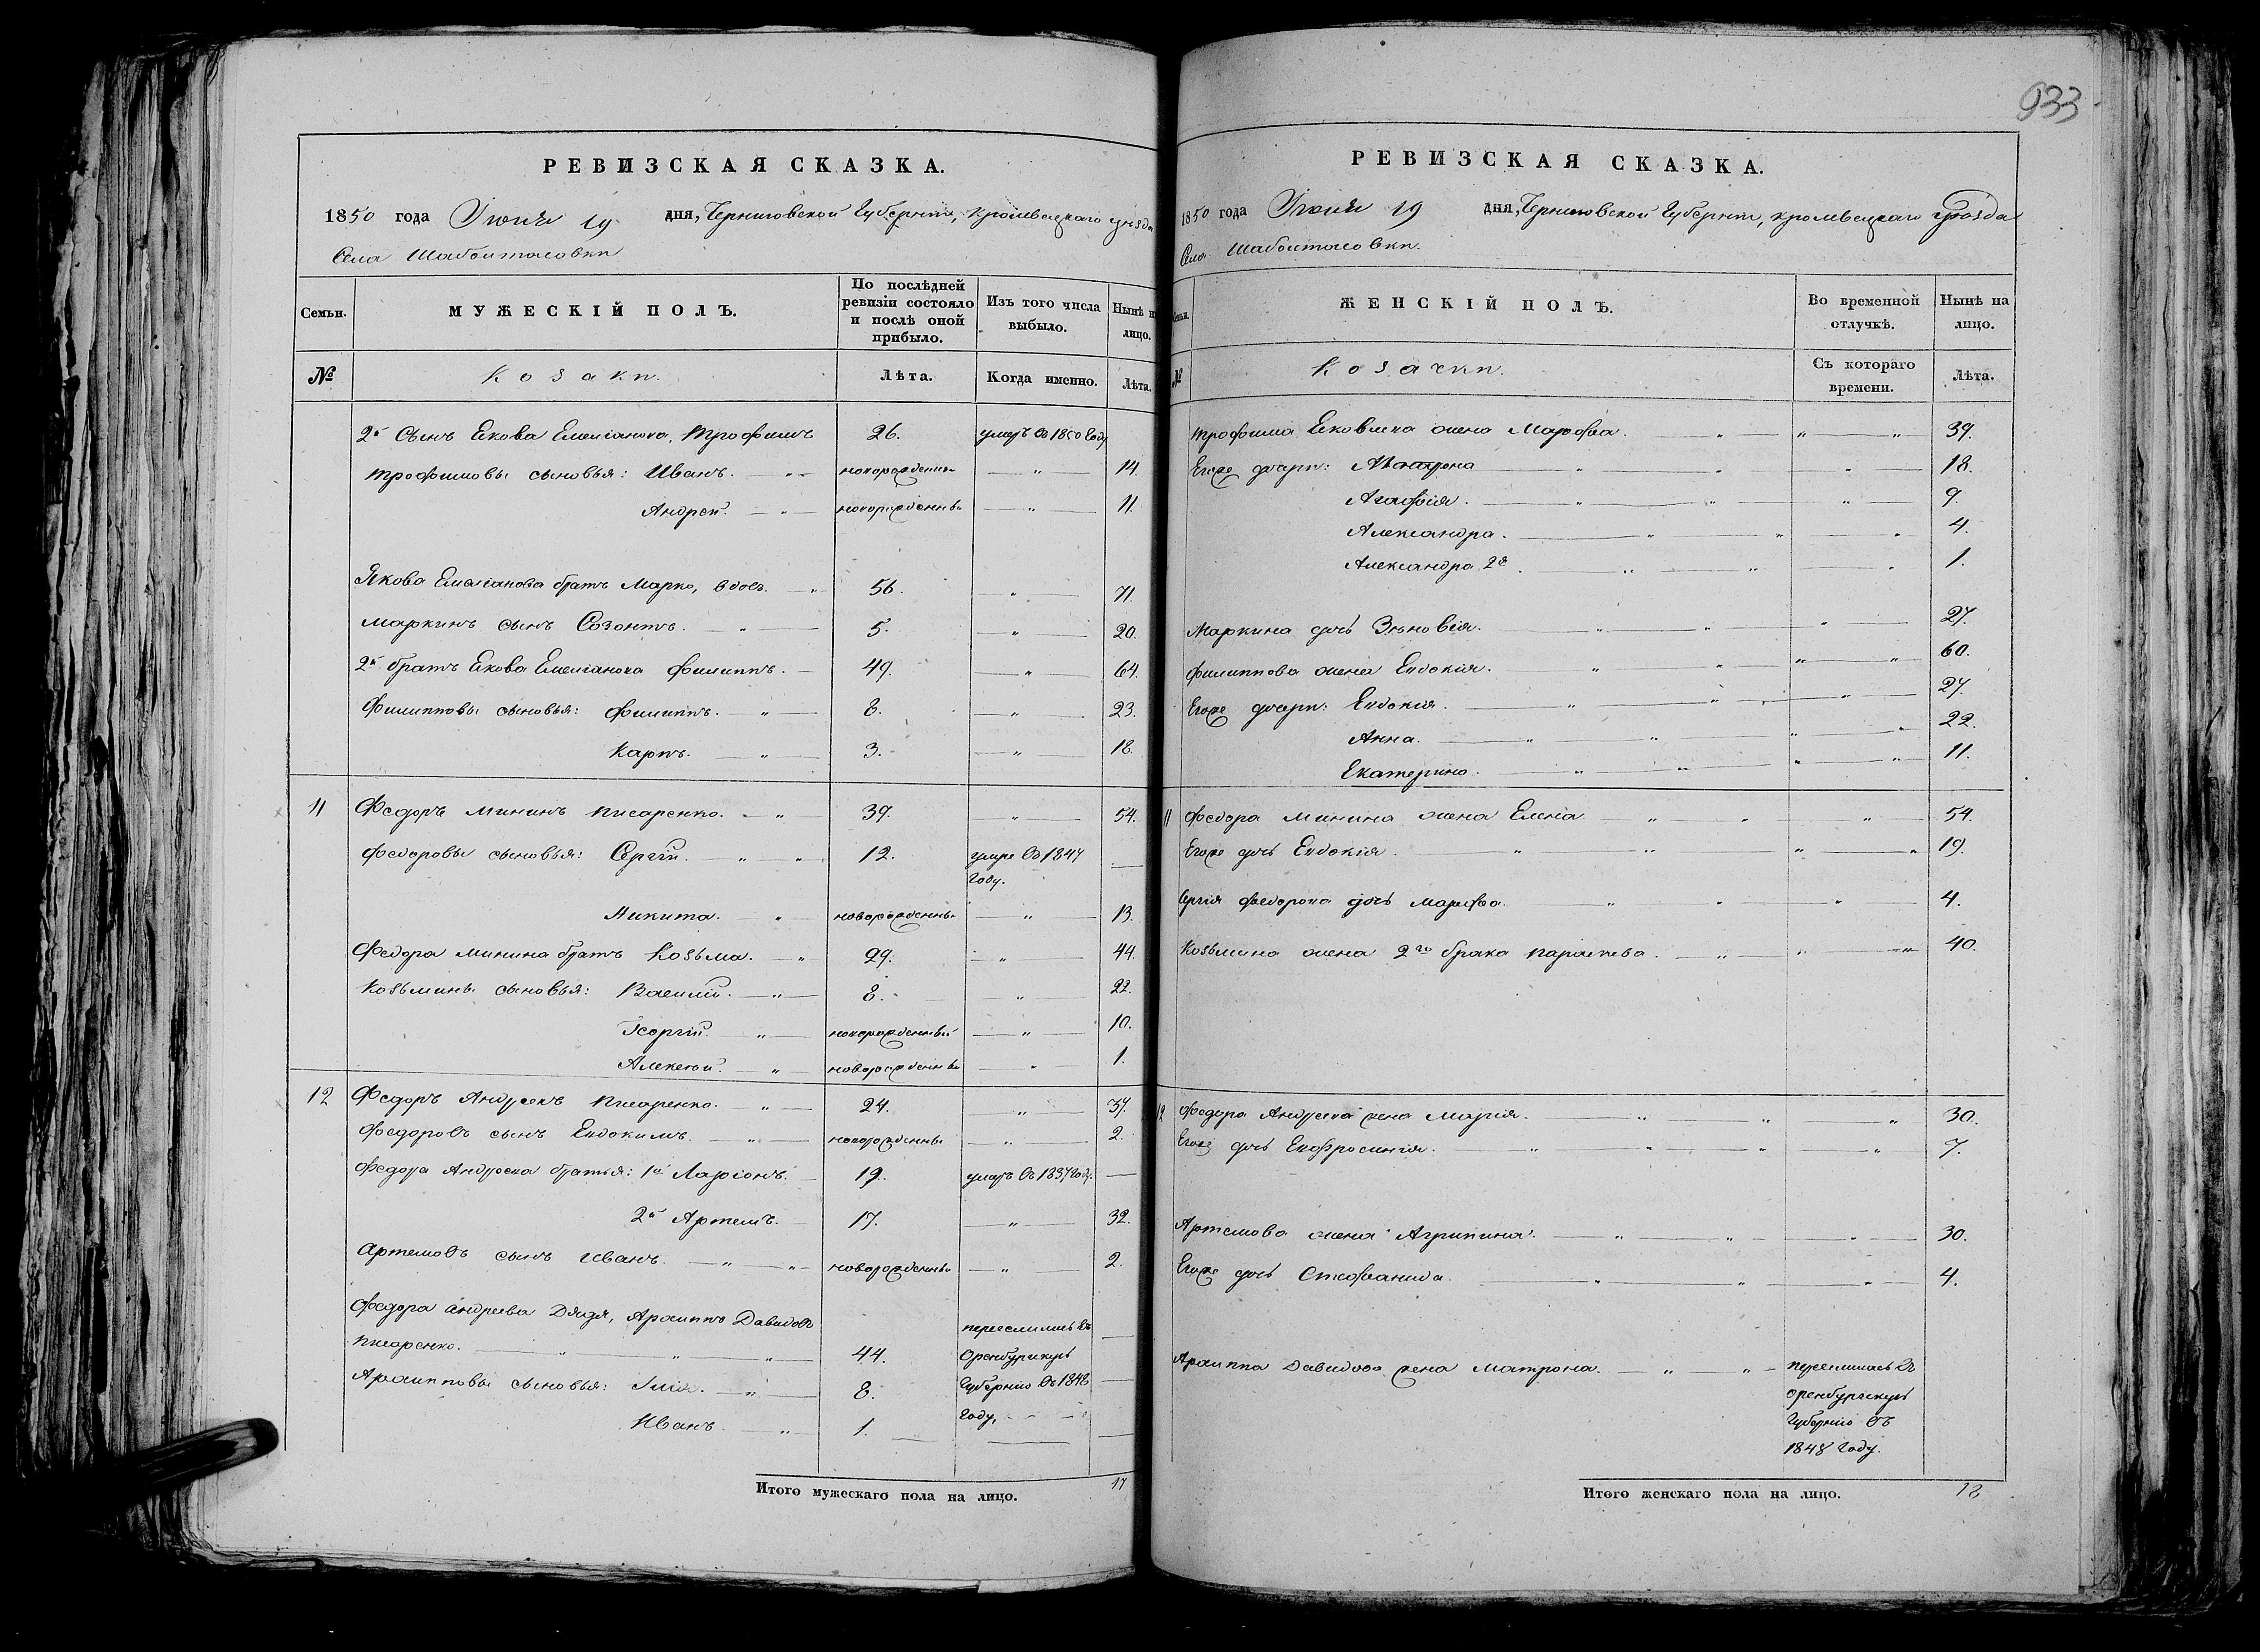 РЕВИЗСКАЯ СКАЗКА.
1850 года Июня 19 дня, Черниговской Губерніи, Кролевецкаго уѣзда
Села Шабалтасовки
Семьи. МУЖЕСКІЙ ПОЛЪ. По послѣдней ревизіи состояло и послѣ оной прибыло. Изъ того числа выбыло. Нынѣ на лицо.
№ Козаки. Лѣта. Когда именно. Лѣта.
2й сынъ Якова Емелianова, Трофимъ 26. умеръ въ 1850 году
Трофимовы сыновья: Иванъ. " новорожденны " 14.
Андрей. " новорожденны " 11.
Якова Емеліанова братъ Марко, вдовъ. " 56. " 71.
Маркинъ сынъ Созонтъ. " 5. " 20.
2й братъ Якова Емеліанова Филиппъ. 49. " 64.
Филипповы сыновья: Филиппъ. " 8. " 23.
Карпъ. " 3. " 18.
11 Федоръ Мининъ Писаренко. " 39. " 54.
Федоровы сыновья: Сергій. " " 12. умре въ 1847
году.
Никита. " новорожденны " 13.
Федора Минина братъ Козьма. " 29. " 44.
Козьмины сыновья: Василій. " 8. " 22.
Георгій. " новорожденный " 10.
Алексѣй. " новорожденны " 1.
12 Федоръ Андреевъ Писаренко. " 24. " 37.
Федоровъ сынъ Евдокимъ. " новорожденны " 2.
Федора Андреева братья: 1й Ларіонъ. 19. умеръ въ 1837 году.
2й Артемъ. 17. " 32.
Артемовъ сынъ Иванъ. " " новорожденны " 2.
Федора Андреева Дядя, Архиппъ Давидовъ
Писаренко. " " " 44.
переселились въ
Оренбургскую
Губернію въ 1848
году,
Архипповы сыновья: Илія. " 8.
Иванъ. " 1.
Итого мужескаго пола на лицо. 17
933
РЕВИЗСКАЯ СКАЗКА.
1850 года Июня 19 дня, Черниговской Губерніи, Кролевецкаго уѣзда
Села Шабалтасовки.
Семьи. ЖЕНСКІЙ ПОЛЪ. Во временной отлучкѣ. Нынѣ на лицо.
№ Козачки. Съ котораго времени. Лѣта.
Трофима Яковлева жена Марфа. " " " 39.
Егоже дочери: Матрона " " " 18.
Агафія. " " " 9.
Александра. " " " 4.
Александра 2я. " " " 1.
Маркина дочь Зѣновія. " " " 27.
Филиппова жена Евдокія. " " " " 60.
Егоже дочери: Евдокія. " " " 27.
Анна. " " " " 22.
Екатерина. " " " " 11.
11 Федора Минина жена Елена " " " 54.
Егоже дочь Евдокія. " " " " 19.
Сергія Федорова дочь Марфа. " " " 4.
Козьмина жена 2го брака Параскева. " " " 40.
12 Федора Андреева жена Марія. " " " 30.
Егоже дочь Евфросинія. " " " " 7.
Артемова жена Агрипина. " " " 30.
Егоже дочь Стефанида. " " " 4.
Архиппа Давидова жена Матрона. " "
переселилась въ
Оренбургскую
Губернію въ
1848 году.
Итого женскаго пола на лицо. 18